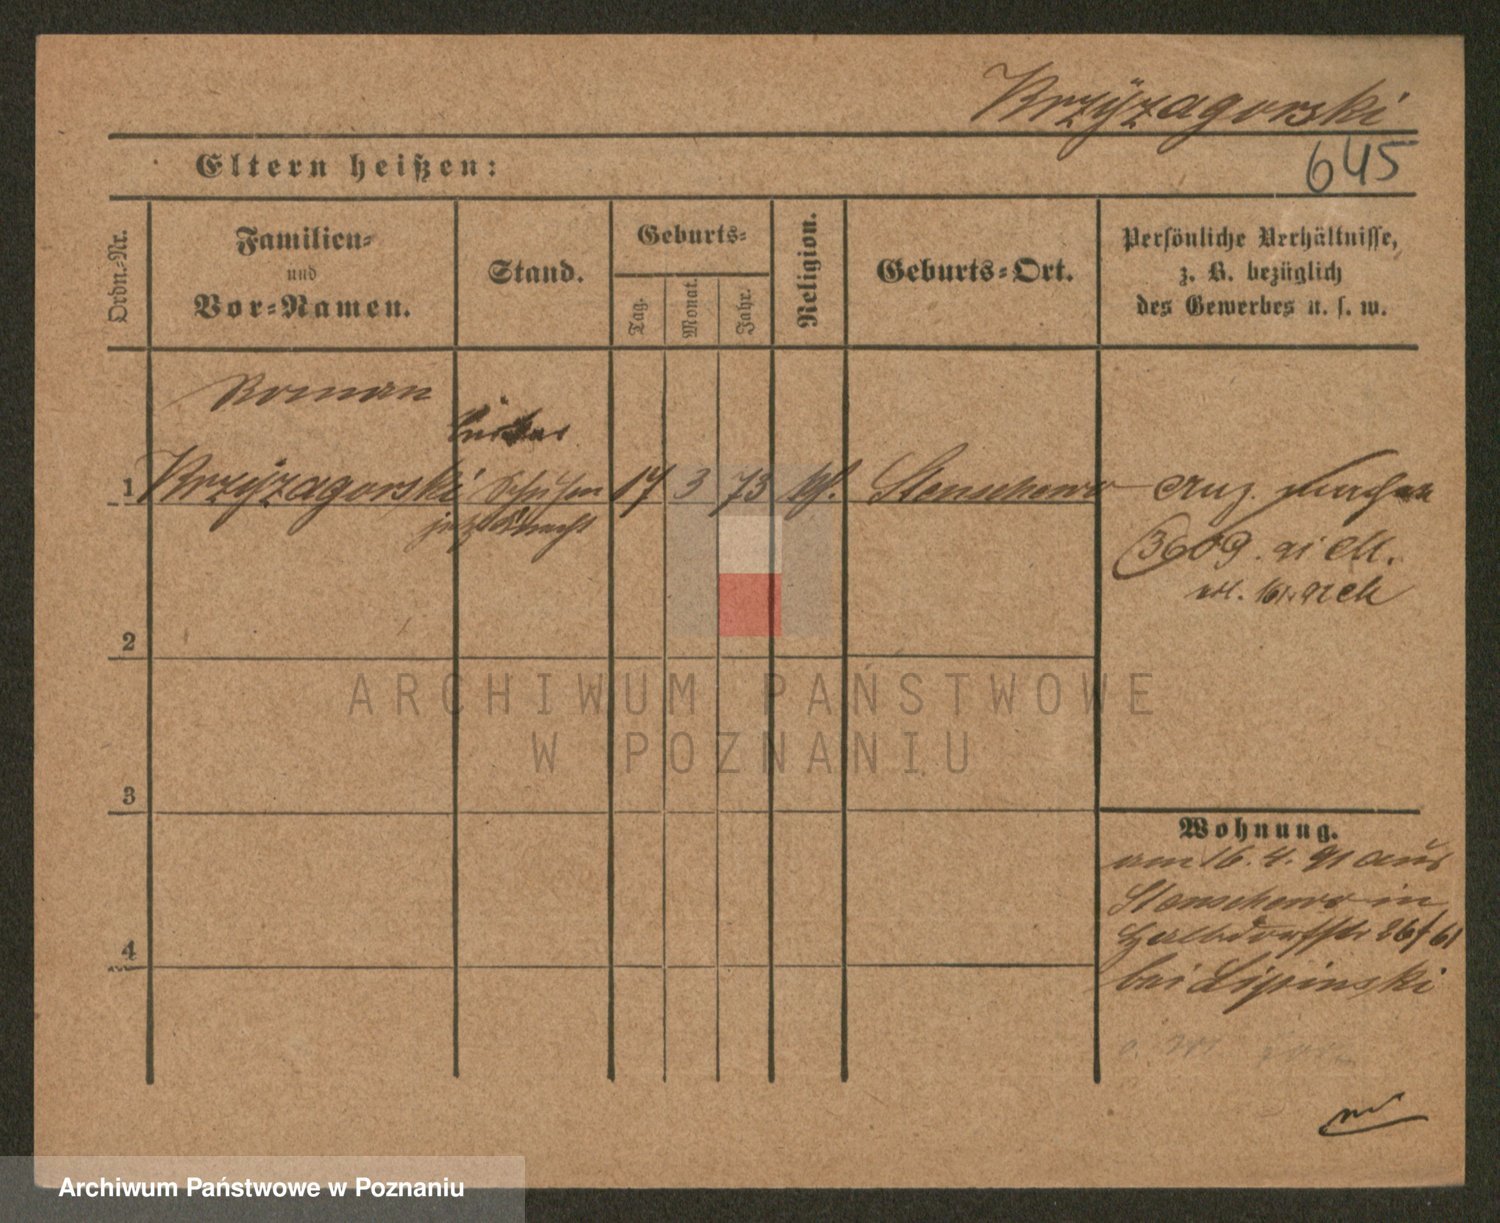 Krzÿzagorski
645
Eltern heißen:
Ordn.-Nr.
Familien-
und
Vor-Namen.
Stand.
Geburts-
Tag.
Monat.
Jahr.
Religion.
Geburts-Ort.
Persönliche Verhältnisse,
z. B. bezüglich
des Gewerbes u. s. w.
Roman
1 Krzÿzagorski 17 3 73 kth. Stenschewo
3609. 91
2
3
4
Wohnung.
am 16. 4. 91 aus
Stenschewo in
Halbdorfstr 26/61
bei Lipinski
ARCHIWUM PAŃSTWOWE
W POZNANIU
Archiwum Państwowe w Poznaniu